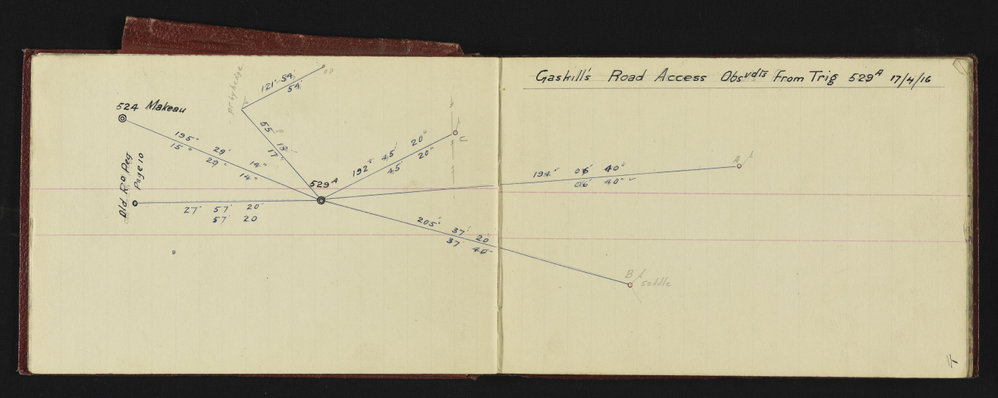 Gaskill's Road Access Obsvdts From Trig 529A 17/4/16
121° 54'
54'
524 Makeau
195° 29' 14"
15° 29' 14"
55° 18'
17'
Old Rd Peg
Page 10
529A
192° 45' 20"
45' 20"
C
194° 06' 40"
06' 40"
A
27° 57' 20"
57 20
205° 37' 20"
37' 40"
B
saddle